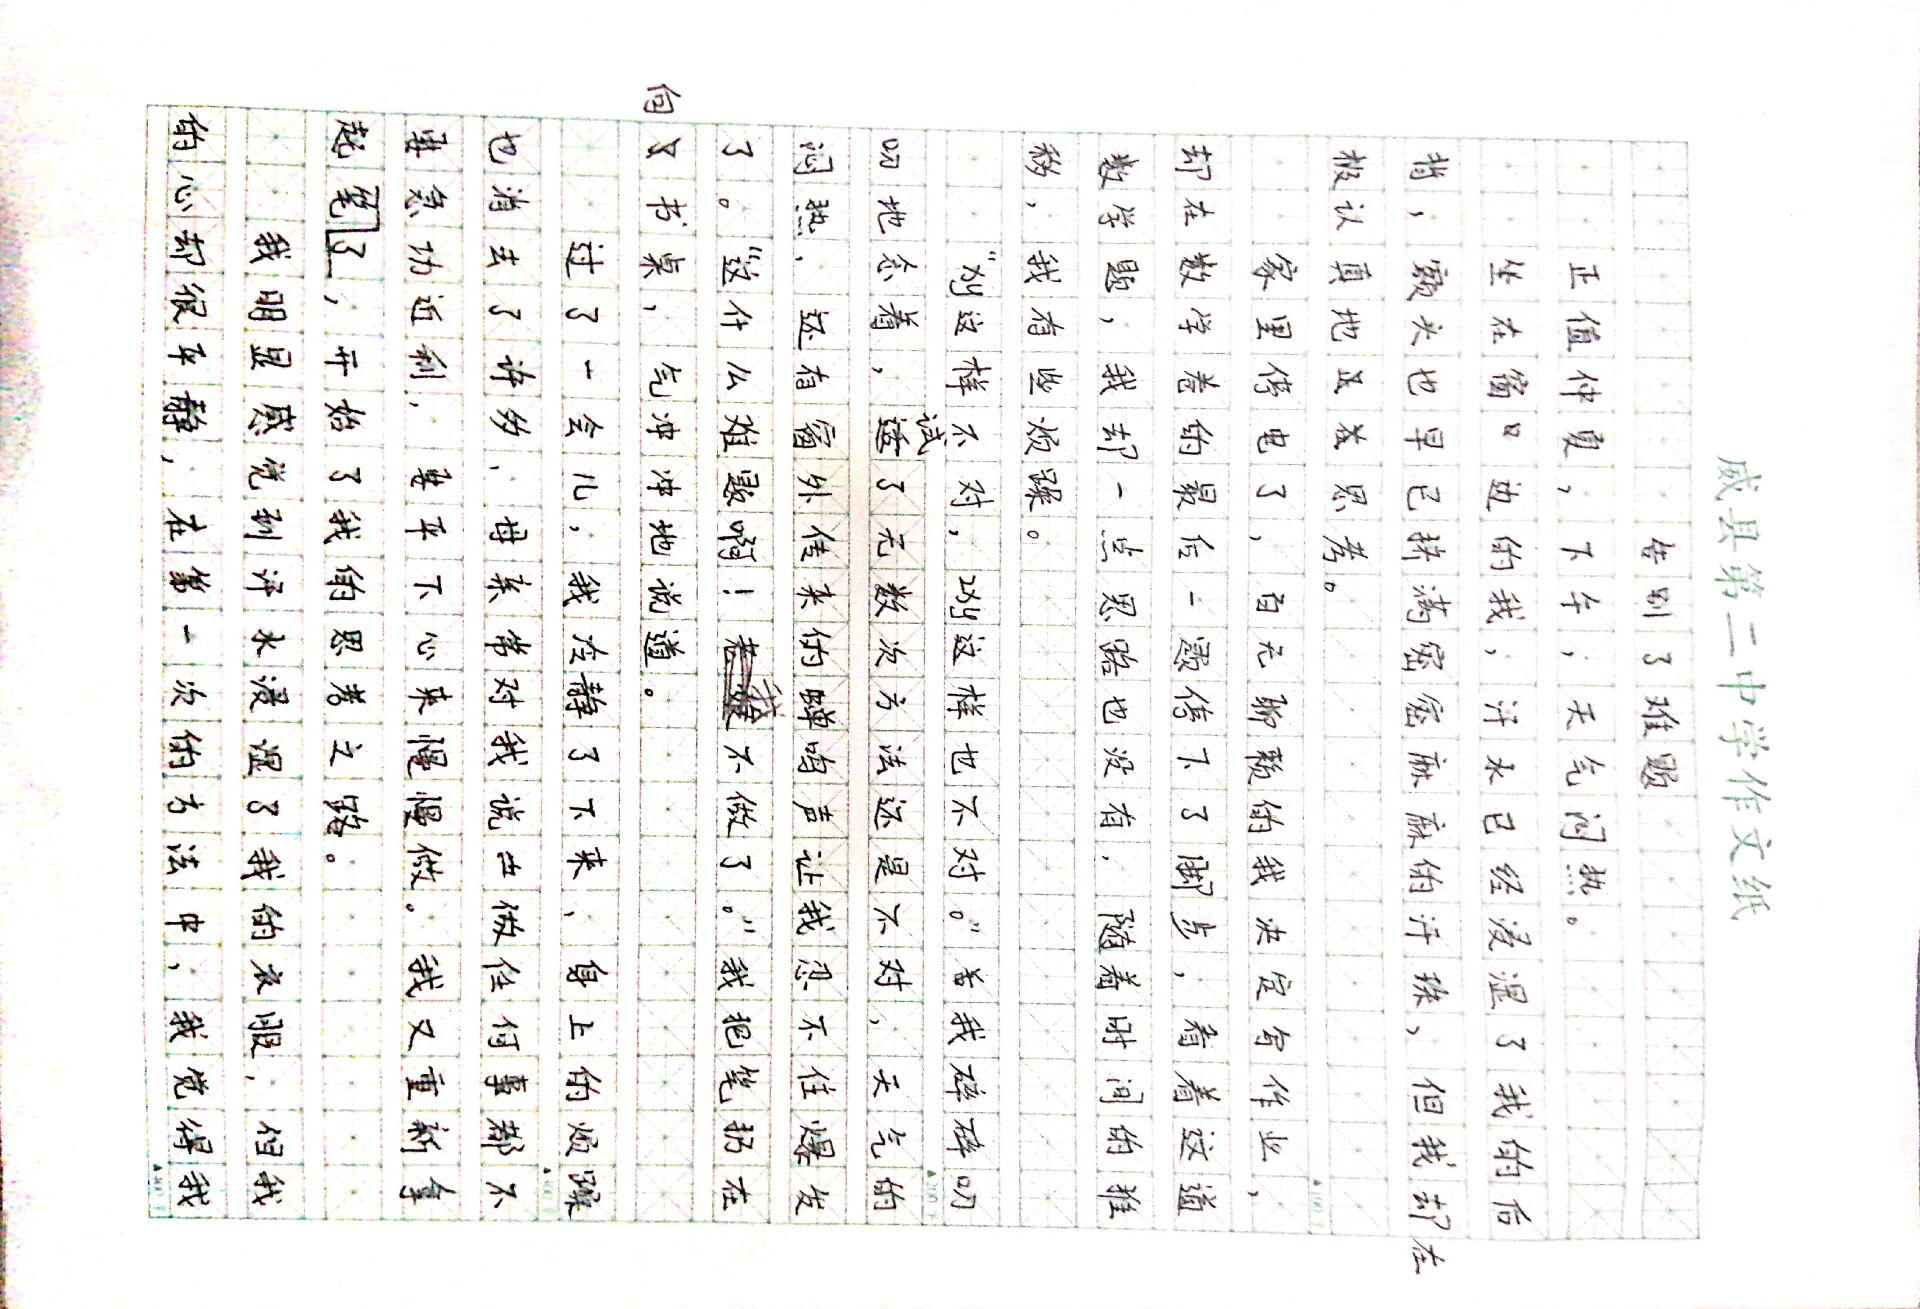 威县第二中学作文纸
告别了难题
正值仲夏，下午，天气闷热。
坐在窗口边的我，汗水已经浸湿了我的后
背，额头也早已挤满密密麻麻的汗珠，但我却在
极认真地思考。
家里停电了，百无聊赖的我决定写作业，
却在数学卷的最后一题停下了脚步，看着这道
数学题，我却一点思路也没有，随着时间的推
移，我有些烦躁。
“必这样不对，必这样也不对。”当我碎碎叨
叨地念着，试了无数次方法还是不对，天气的
闷热，还有窗外传来的蝉鸣声让我忍不住爆发
了。“这什么难题啊！我不做了。”我把笔扔在
书桌，气冲冲地说道。
向
过了一会儿，我冷静了下来，身上的烦躁
也消去了许多，母亲常对我说出做任何事都不
要急功近利，要平下心来慢慢做。我又重新拿
起笔了，开始了我的思考之路。
我明显感觉到汗水浸湿了我的衣服，但我
的心却很平静，在第一次的方法中，我觉得我